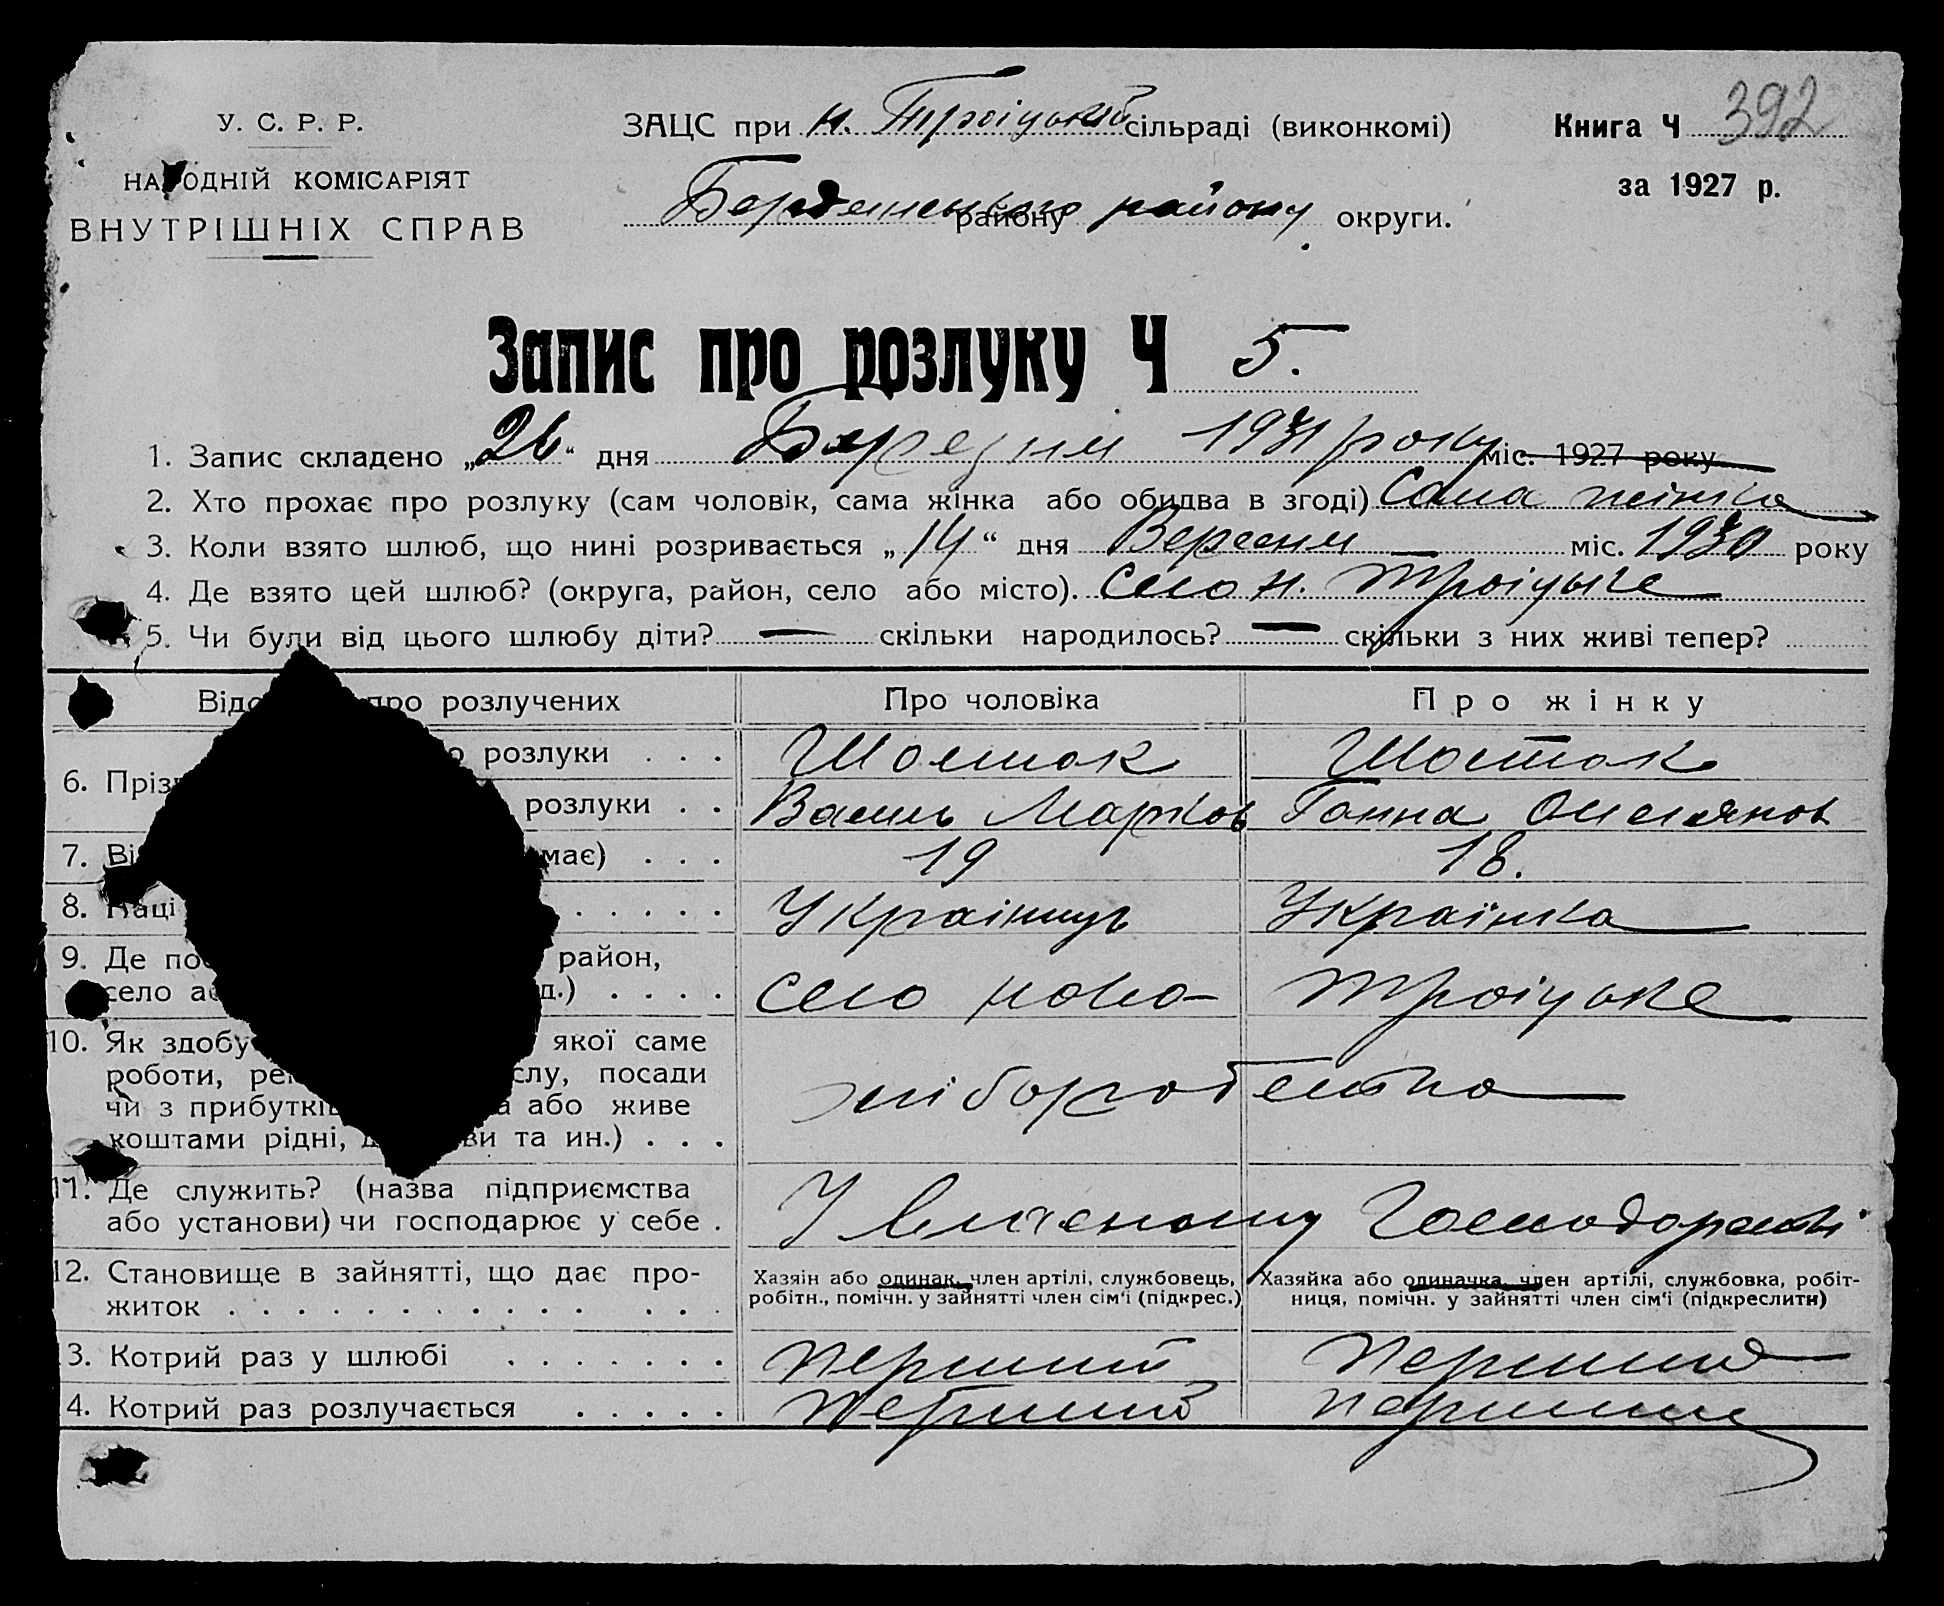 У. С. Р. Р.
НАРОДНІЙ КОМІСАРІЯТ
ВНУТРІШНІХ СПРАВ
ЗАЦС при н. Троіцькій сільраді (виконкомі)
Бердянського району району округи.
Книга Ч 392
за 1927 р.
Запис про розлуку Ч 5.
1. Запис складено „26“ дня Березня 1931 року міс. 1927 року
2. Хто прохає про розлуку (сам чоловік, сама жінка або обидва в згоді) Сама жінка
3. Коли взято шлюб, що нині розривається „14“ дня Вересня — міс. 1930 року
4. Де взято цей шлюб? (округа, район, село або місто). село н. Троіцьке
5. Чи були від цього шлюбу діти? — скільки народилось? — скільки з них живі тепер?
Відо про розлучених Про чоловіка Про жінку
о розлуки . . . Шостак Шостак
6. Прізв
розлуки . . Василь Марков Ганна Омелянов
7. Ві має) . . . 19 18.
8. Наці . . . . . . Украінець Украінка
9. Де пос район,
село аб д.) . . . . село ново- Троіцьке
10. Як здобу якої саме
роботи, рем слу, посади
чи з прибутків а або живе
коштами рідні, д ви та ин.) . . . хліборобством
11. Де служить? (назва підприємства
або установи) чи господарює у себе . У власному Господарстві
12. Становище в зайнятті, що дає про-
житок . . . . . . . . . . . . . . .
Хазяін або одинак, член артілі, службовець,
робітн., помічн. у зайнятті член сім'ї (підкрес.)
Хазяйка або одиначка, член артілі, службовка, робіт-
ниця, помічн. у зайнятті член сім'ї (підкреслити)
3. Котрий раз у шлюбі . . . . . . . перший перший
4. Котрий раз розлучається . . . . . перший перший